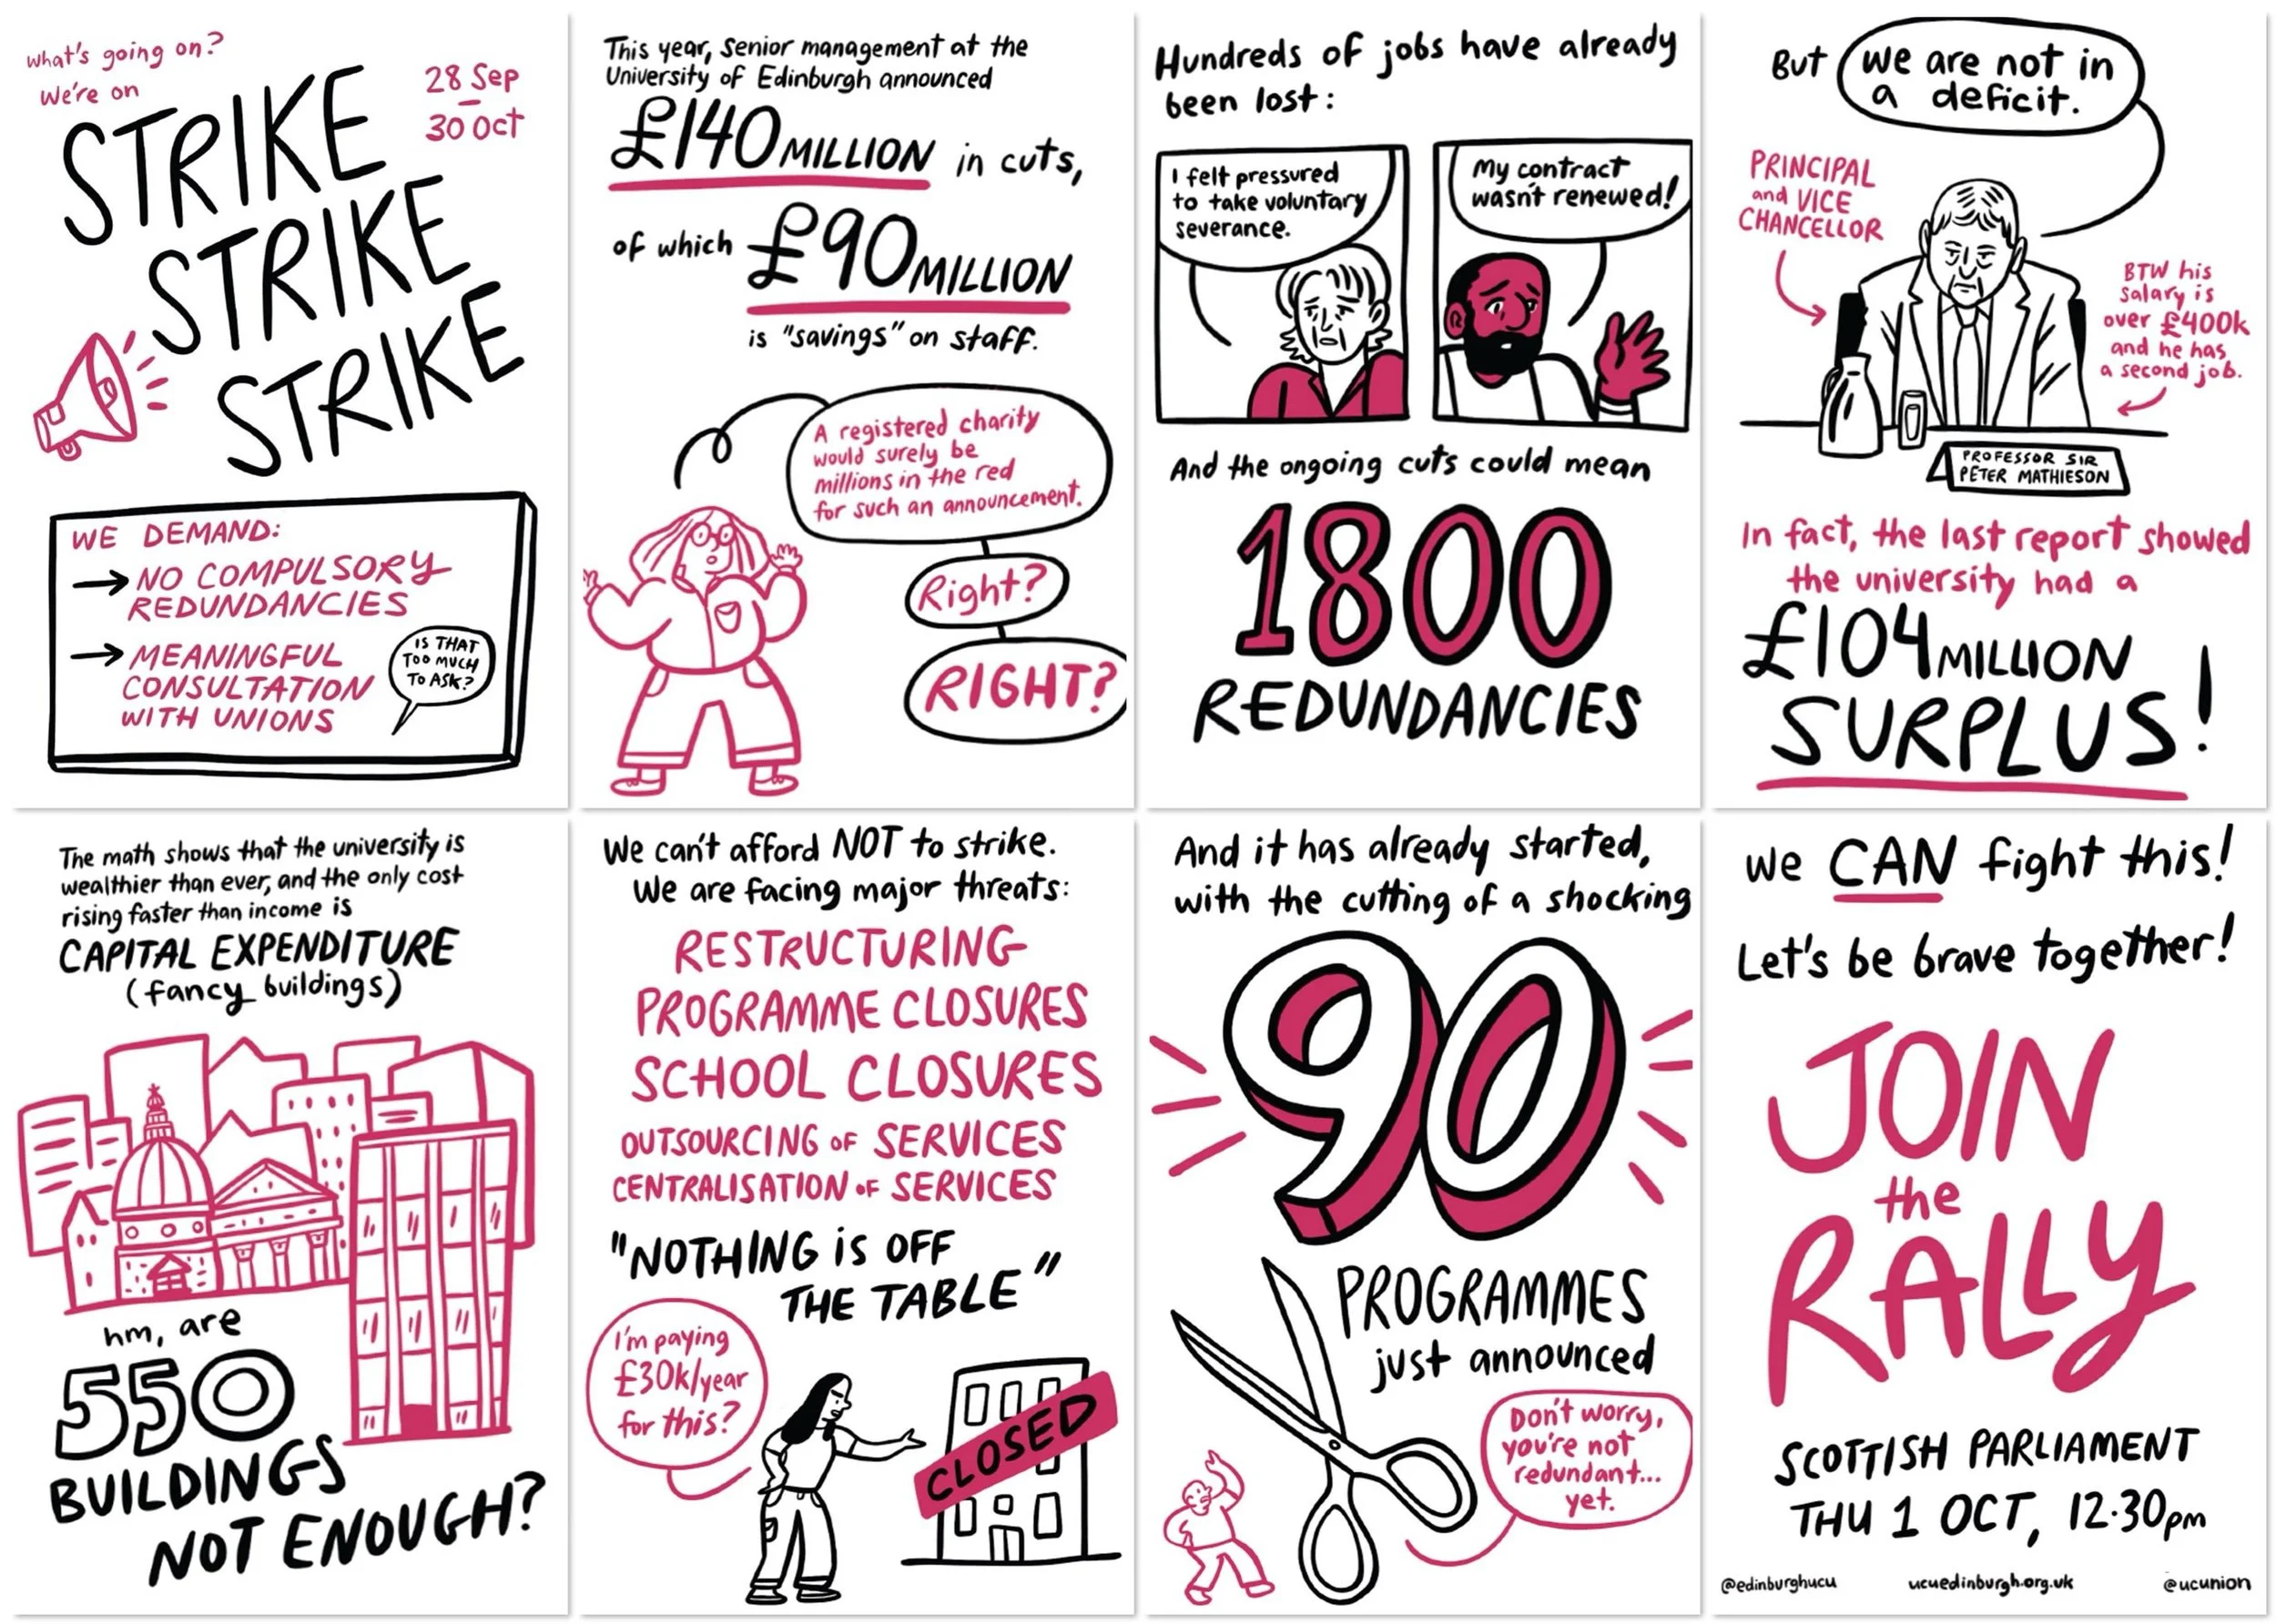 What's going on?
We're on
28 Sep
–
30 Oct
STRIKE
STRIKE
STRIKE
WE DEMAND:
→ NO COMPULSORY
REDUNDANCIES
→ MEANINGFUL
CONSULTATION
WITH UNIONS
IS THAT
TOO MUCH
TO ASK?
This year, senior management at the
University of Edinburgh announced
£140 MILLION in cuts,
of which £90 MILLION
is "savings" on staff.
A registered charity
would surely be
millions in the red
for such an announcement.
Right?
RIGHT?
Hundreds of jobs have already
been lost:
I felt pressured
to take voluntary
severance.
My contract
wasn't renewed!
And the ongoing cuts could mean
1800
REDUNDANCIES
But we are not in
a deficit.
PRINCIPAL
and VICE
CHANCELLOR
BTW his
salary is
over £400k
and he has
a second job.
PROFESSOR SIR
PETER MATHIESON
In fact, the last report showed
the university had a
£104 MILLION
SURPLUS!
The math shows that the university is
wealthier than ever, and the only cost
rising faster than income is
CAPITAL EXPENDITURE
(fancy buildings)
hm, are
550
BUILDINGS
NOT ENOUGH?
We can't afford NOT to strike.
We are facing major threats:
RESTRUCTURING
PROGRAMME CLOSURES
SCHOOL CLOSURES
OUTSOURCING OF SERVICES
CENTRALISATION OF SERVICES
"NOTHING is OFF
THE TABLE"
I'm paying
£30k/year
for this?
CLOSED
And it has already started,
with the cutting of a shocking
90
PROGRAMMES
just announced
Don't worry,
you're not
redundant...
yet.
We CAN fight this!
Let's be brave together!
JOIN
the
RALLY
SCOTTISH PARLIAMENT
THU 1 OCT, 12·30pm
@edinburghucu ucuedinburgh.org.uk @ucunion